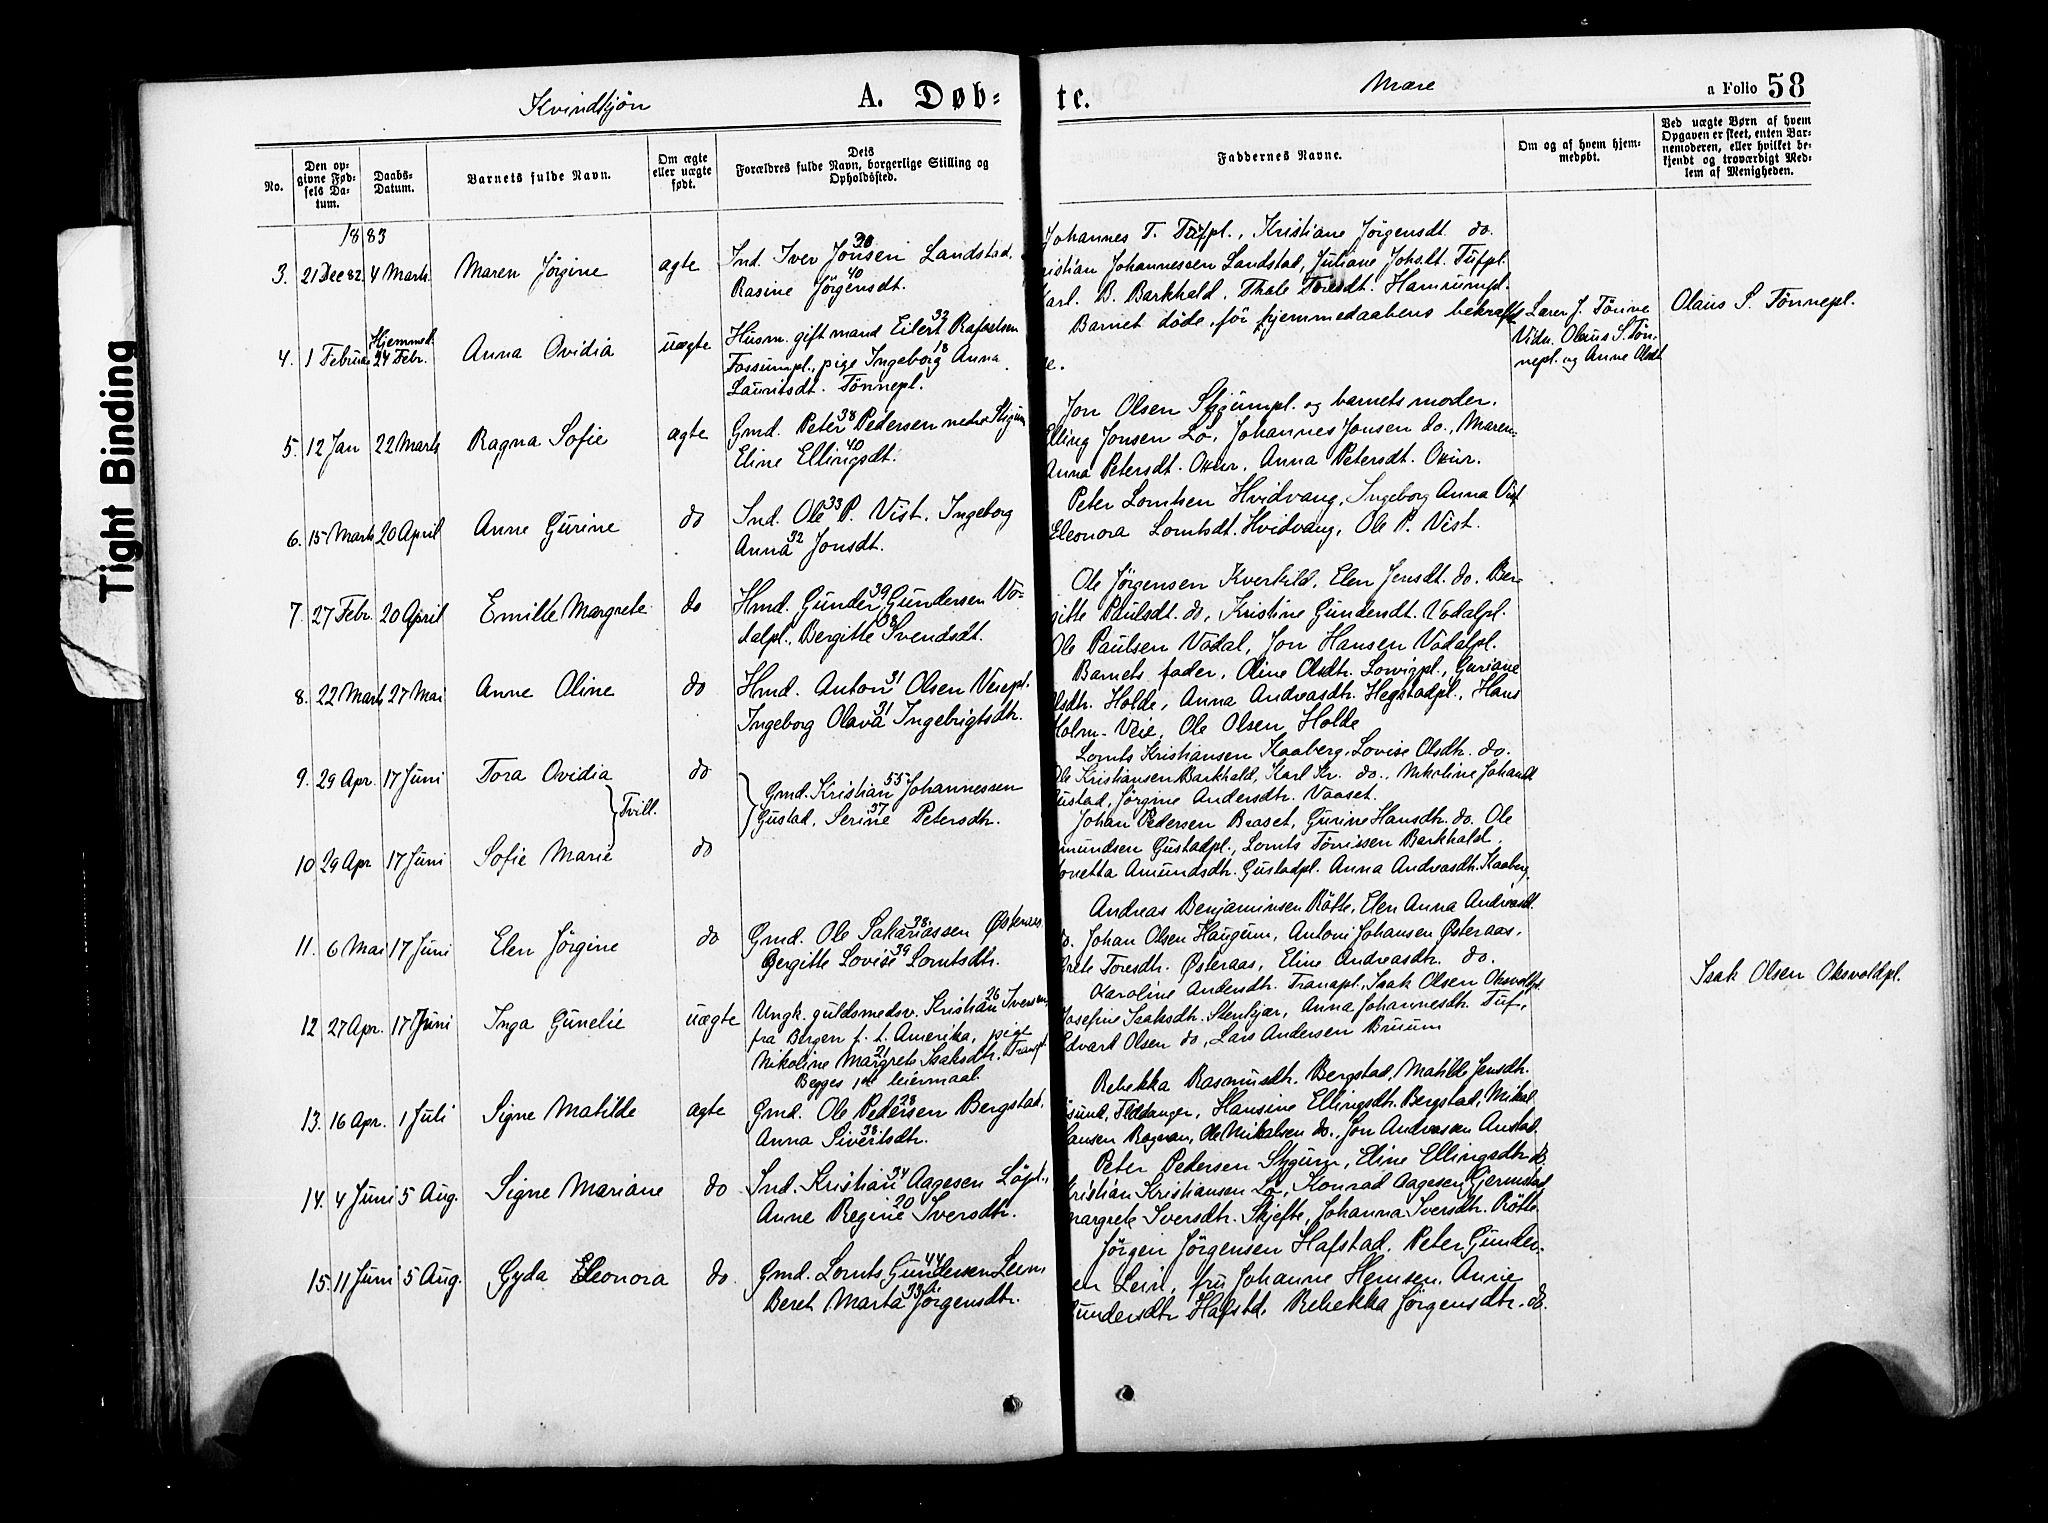 Kvindkjøn A. Døb= te. Mære a Folio 58
No. Den opgivne Fødsels Datum. Daabs-Datum. Barnets fulde Navn. Om ægte eller uægte født. Dets Forældres fulde Navn, borgerlige Stilling og Opholdssted. Faddernes Navne. Om og af hvem hjemmedøbt. Ved uægte Børn af hvem Opgaven er skeet, enten Barnemoderen, eller hvilket bekjendt og troværdigt Medlem af Menigheden.
Tight Binding
1883
Johannes T. Tufpl., Kristiane Jørgensdt. do.
3. 21 Dec 82. 4 Marts Maren Jørgine ægte Ind. Iver Jonsen 30 Landstad.
Rasine Jørgensdt. 40
ristian Johannessen Landstad, Juliane Johsdt. Tufpl.
Karl. B. Barkhald. Thale Toresdt. Hamrumpl.
4. 1 Februar Hjemmed. 24 Febr. Anna Ovidia uægte Husm. gift mand Eilert 32 Rafaelsen
Fossumpl., pige Ingeborg 18 Anna
Lauritsdt. Tønnepl.
Barnet døde, før hjemmedaabens bekræft
e.
Lærer J. Tønne
Vidn. Olaus S. Tøn-
nepl. og Anne Olsdt
Olaus S. Tønnepl.
5. 12 Jan 22 Marts Ragna Sofie ægte Gmd. Peter 38 Pedersen nedre Skjgum
Eline Ellingsdt. 40
Jon Olsen Skjgumpl. og barnets moder.
Elling Jonsen Lø, Johannes Jonsen do., Maren-
Anna Petersdt. Okur. Anna Petersdt. Okur.
6. 15 Marts 20 April Anne Gurine do Ind. Ole 33 P. Vist. Ingeborg
Anna 32 Jonsdt.
Peter Lorntsen Hvidvang, Ingeborg Anna Vist
Eleonora Lorntsdt. Hvidvang, Ole P. Vist.
7. 27 Febr. 20 April Emilie Margrete do Hmd. Gunder 39 Gundersen Vo-
dalpl. Bergitte 38 Svendsdt.
Ole Jørgensen Kverkild, Elen Jensdt. do. Ber-
gitte Paulsdt. do, Kristine Gundersdt. Vodalpl.
Ole Paulsen Vodal, Jon Hansen Vodalpl.
8. 22 Marts 27 Mai Anne Oline do Hmd. Anton 31 Olsen Veiepl.
Ingeborg Olava 31 Ingebrigtsdtr.
Barnets fader, Oline Olsdtr. Lorvigpl., Guriane
Olsdtr. Holde, Anna Andreasdtr. Hegstadpl., Hans
Holm- Veie, Ole Olsen, Holde
9. 29 Apr. 17 Juni Tora Ovidia do
Tvill.
Gmd. Kristian 55 Johannessen
Gustad, Serine 37 Petersdtr.
Lornts Kristiansen Kaaberg, Lovise Olsdtr. do.
Ole Kristiansen Barkhald, Karl Kr. do., Nikoline Johansd.
Gustad, Jørgine Andersdtr. Vaaset.
10 29 Apr 17 Juni Sofie Marie do
Johan Pedersen Braset, Gurine Hansdtr. do. Ole
mundsen Gustadpl., Lornts Tørrisen Barkhald,
onetta Amundsdtr. Gustadpl. Anna Andreasdtr. Kaaberg.
11. 6 Mai 17 Juni Elen Jørgine do Gmd. Ole Sakariassen 38 Østeraas
Bergitte Lovise 39 Lorntsdtr.
Andreas Benjaminsen Røtte, Elen Anna Andreasdt.
do. Johan Olsen Haugum, Antoni Johansen Østeraas,
Grete Toresdtr. Østeraas, Eline Andreasdtr. do.
12 27 Apr. 17 Juni Inga Gunelie uægte Ungk. guldsmedsv. Kristian 26 Iversen
fra Bergen f. t. Amerika, pige
Nikoline Margrete 21 Isaksdtr. Tranpl.
Begges 1ste leiermaal.
Karoline Andersdtr. Tranapl., Isak Olsen Oksvoldpl
Josefine Isaksdtr. Stenkjær, Anna Johannesdtr. Tuf,
Edvart Olsen do, Lars Andersen Bruum
Isak Olsen Oksvoldpl.
13. 16 Apr. 1 Juli Signe Matilde ægte Gmd. Ole Pedersen 28 Bergstad,
Anna Sivertsdtr. 38
Rebekka Rasmusdtr. Bergstad, Matilde Jensdtr.
sund, Flddanger, Hansine Ellingsdtr. Bergstad, Mikal
Hansen Rognan, Ole Mikalsen do., Jon Andreasen Anstad.
14. 4 Juni 5 Aug. Signe Mariane do Ind. Kristian 34 Aagesen Løpl.,
Anne Regine 20 Iversdtr.
Peter Pedersen Skjgum, Eline Ellingsdtr. do.
Kristian Kristiansen Lø, Konrad Aagesen Gjermstad,
Margrete Iversdtr. Skjefte, Johanna Iversdtr. Røtte.
15. 11 Juni 5 Aug. Gyda Eleonora do. Gmd. Lornts Gundersen 44 Lein,
Beret Marta 33 Jørgensdtr.
Jørgen Jørgensen Hafstad. Peter Gunder-
en Lein, fru Johanne Hemsen, Anne
Gundersdtr Hafstd, Rebekka Jørgensdtr. do.